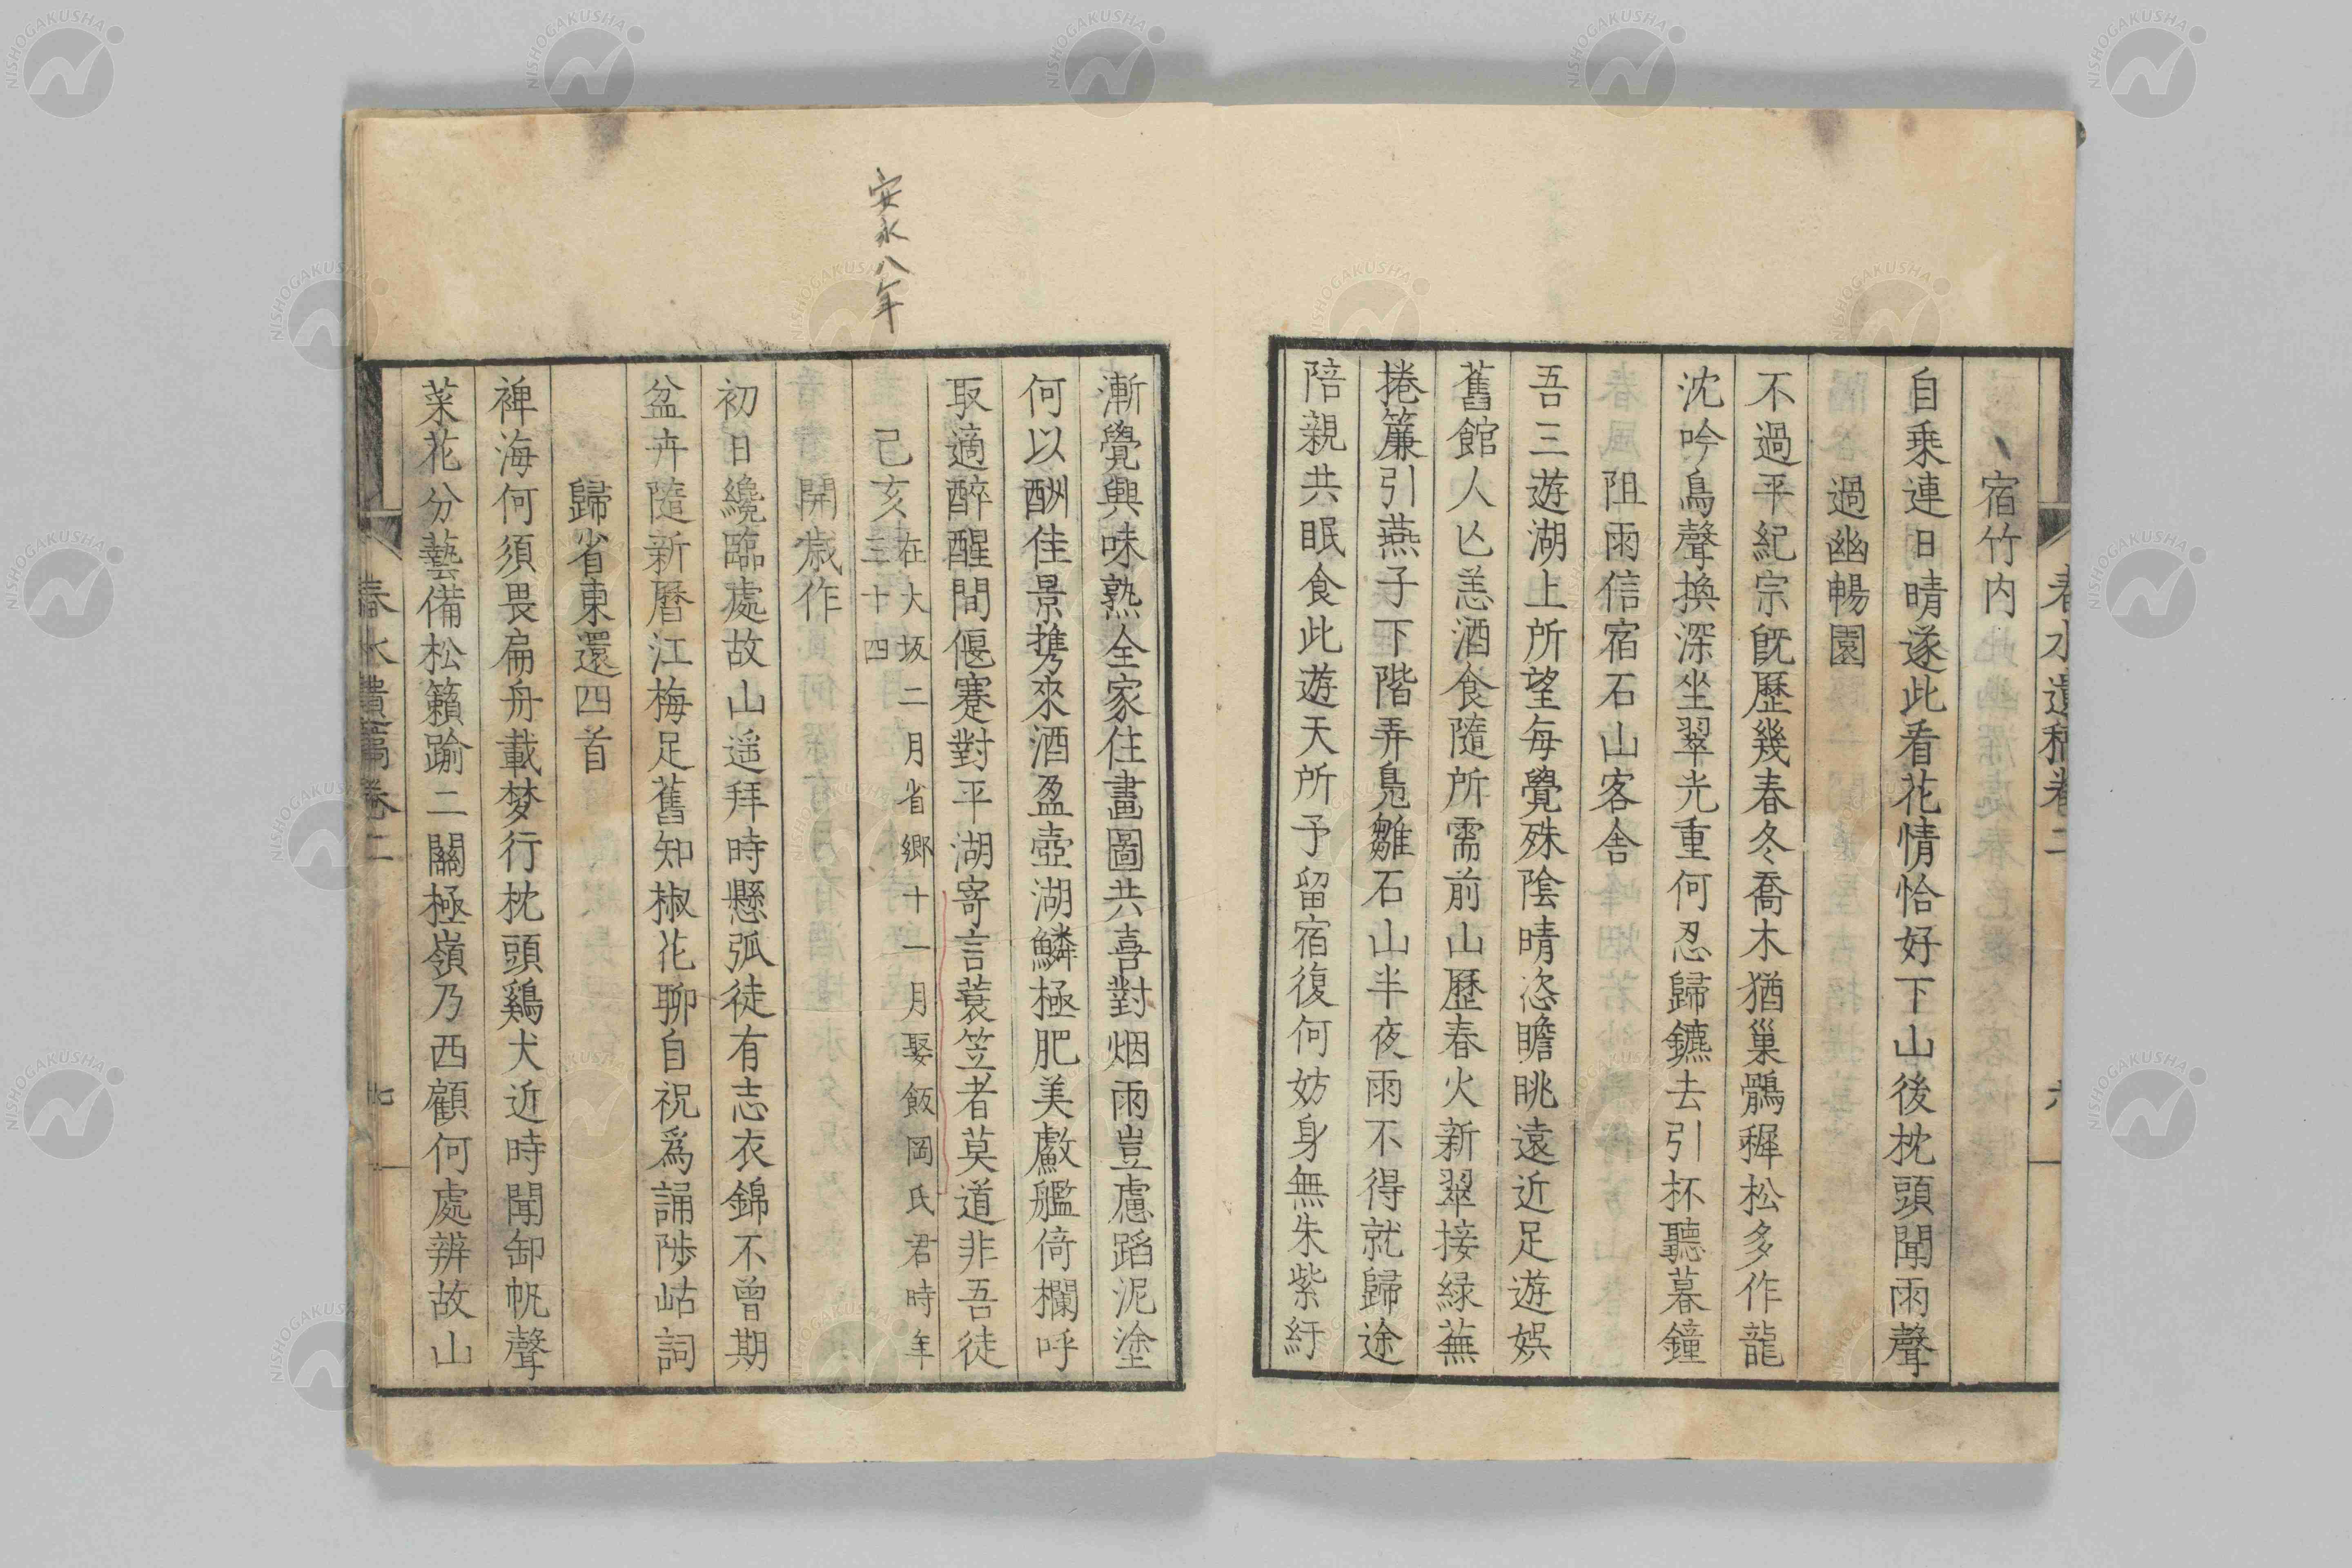 春水遺稿卷二
六
宿竹内
自乗連日晴遂此看花情恰好下山後枕頭聞雨聲
過幽暢園
不過平紀宗既歷幾春冬喬木猶巢鶻穉松多作龍
沈吟鳥聲換深坐翠光重何忍歸鑣去引杯聽暮鐘
阻雨信宿石山客舎
吾三遊湖上所望每覺殊陰晴恣瞻眺遠近足遊娯
舊館人亾恙酒食隨所需前山歷春火新翠接緑蕪
捲簾引燕子下階弄鳧雛石山半夜雨不得就歸途
陪親共眠食此遊天所予留宿復何妨身無朱紫紆
漸覺興味熟全家住畫圖共喜對烟雨豈慮蹈泥塗
何以酬佳景攜來酒盈壺湖鱗極肥美處艦倚欄呼
取適醉醒間偃蹇對平湖寄言蓑笠者莫道非吾徒
安永八年
己亥在大坂二月省郷十一月娶飯岡氏君時年三十四
開歳作
初日纔臨處故山遥拜時懸弧徒有志衣錦不曾期
盆卉隨新曆江梅足舊知椒花聊自祝爲誦陟岵詞
歸省東還四首
裨海何須畏扁舟載梦行枕頭鷄犬近時聞卸帆聲
菜花分藝備松籟踰二關極嶺乃西顧何處辨故山
春水遺稿卷二
七